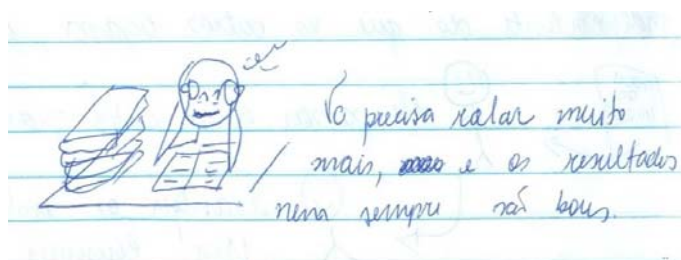 Vc precisa ralar muito
mais, e os resultados
nem sempre são bons.